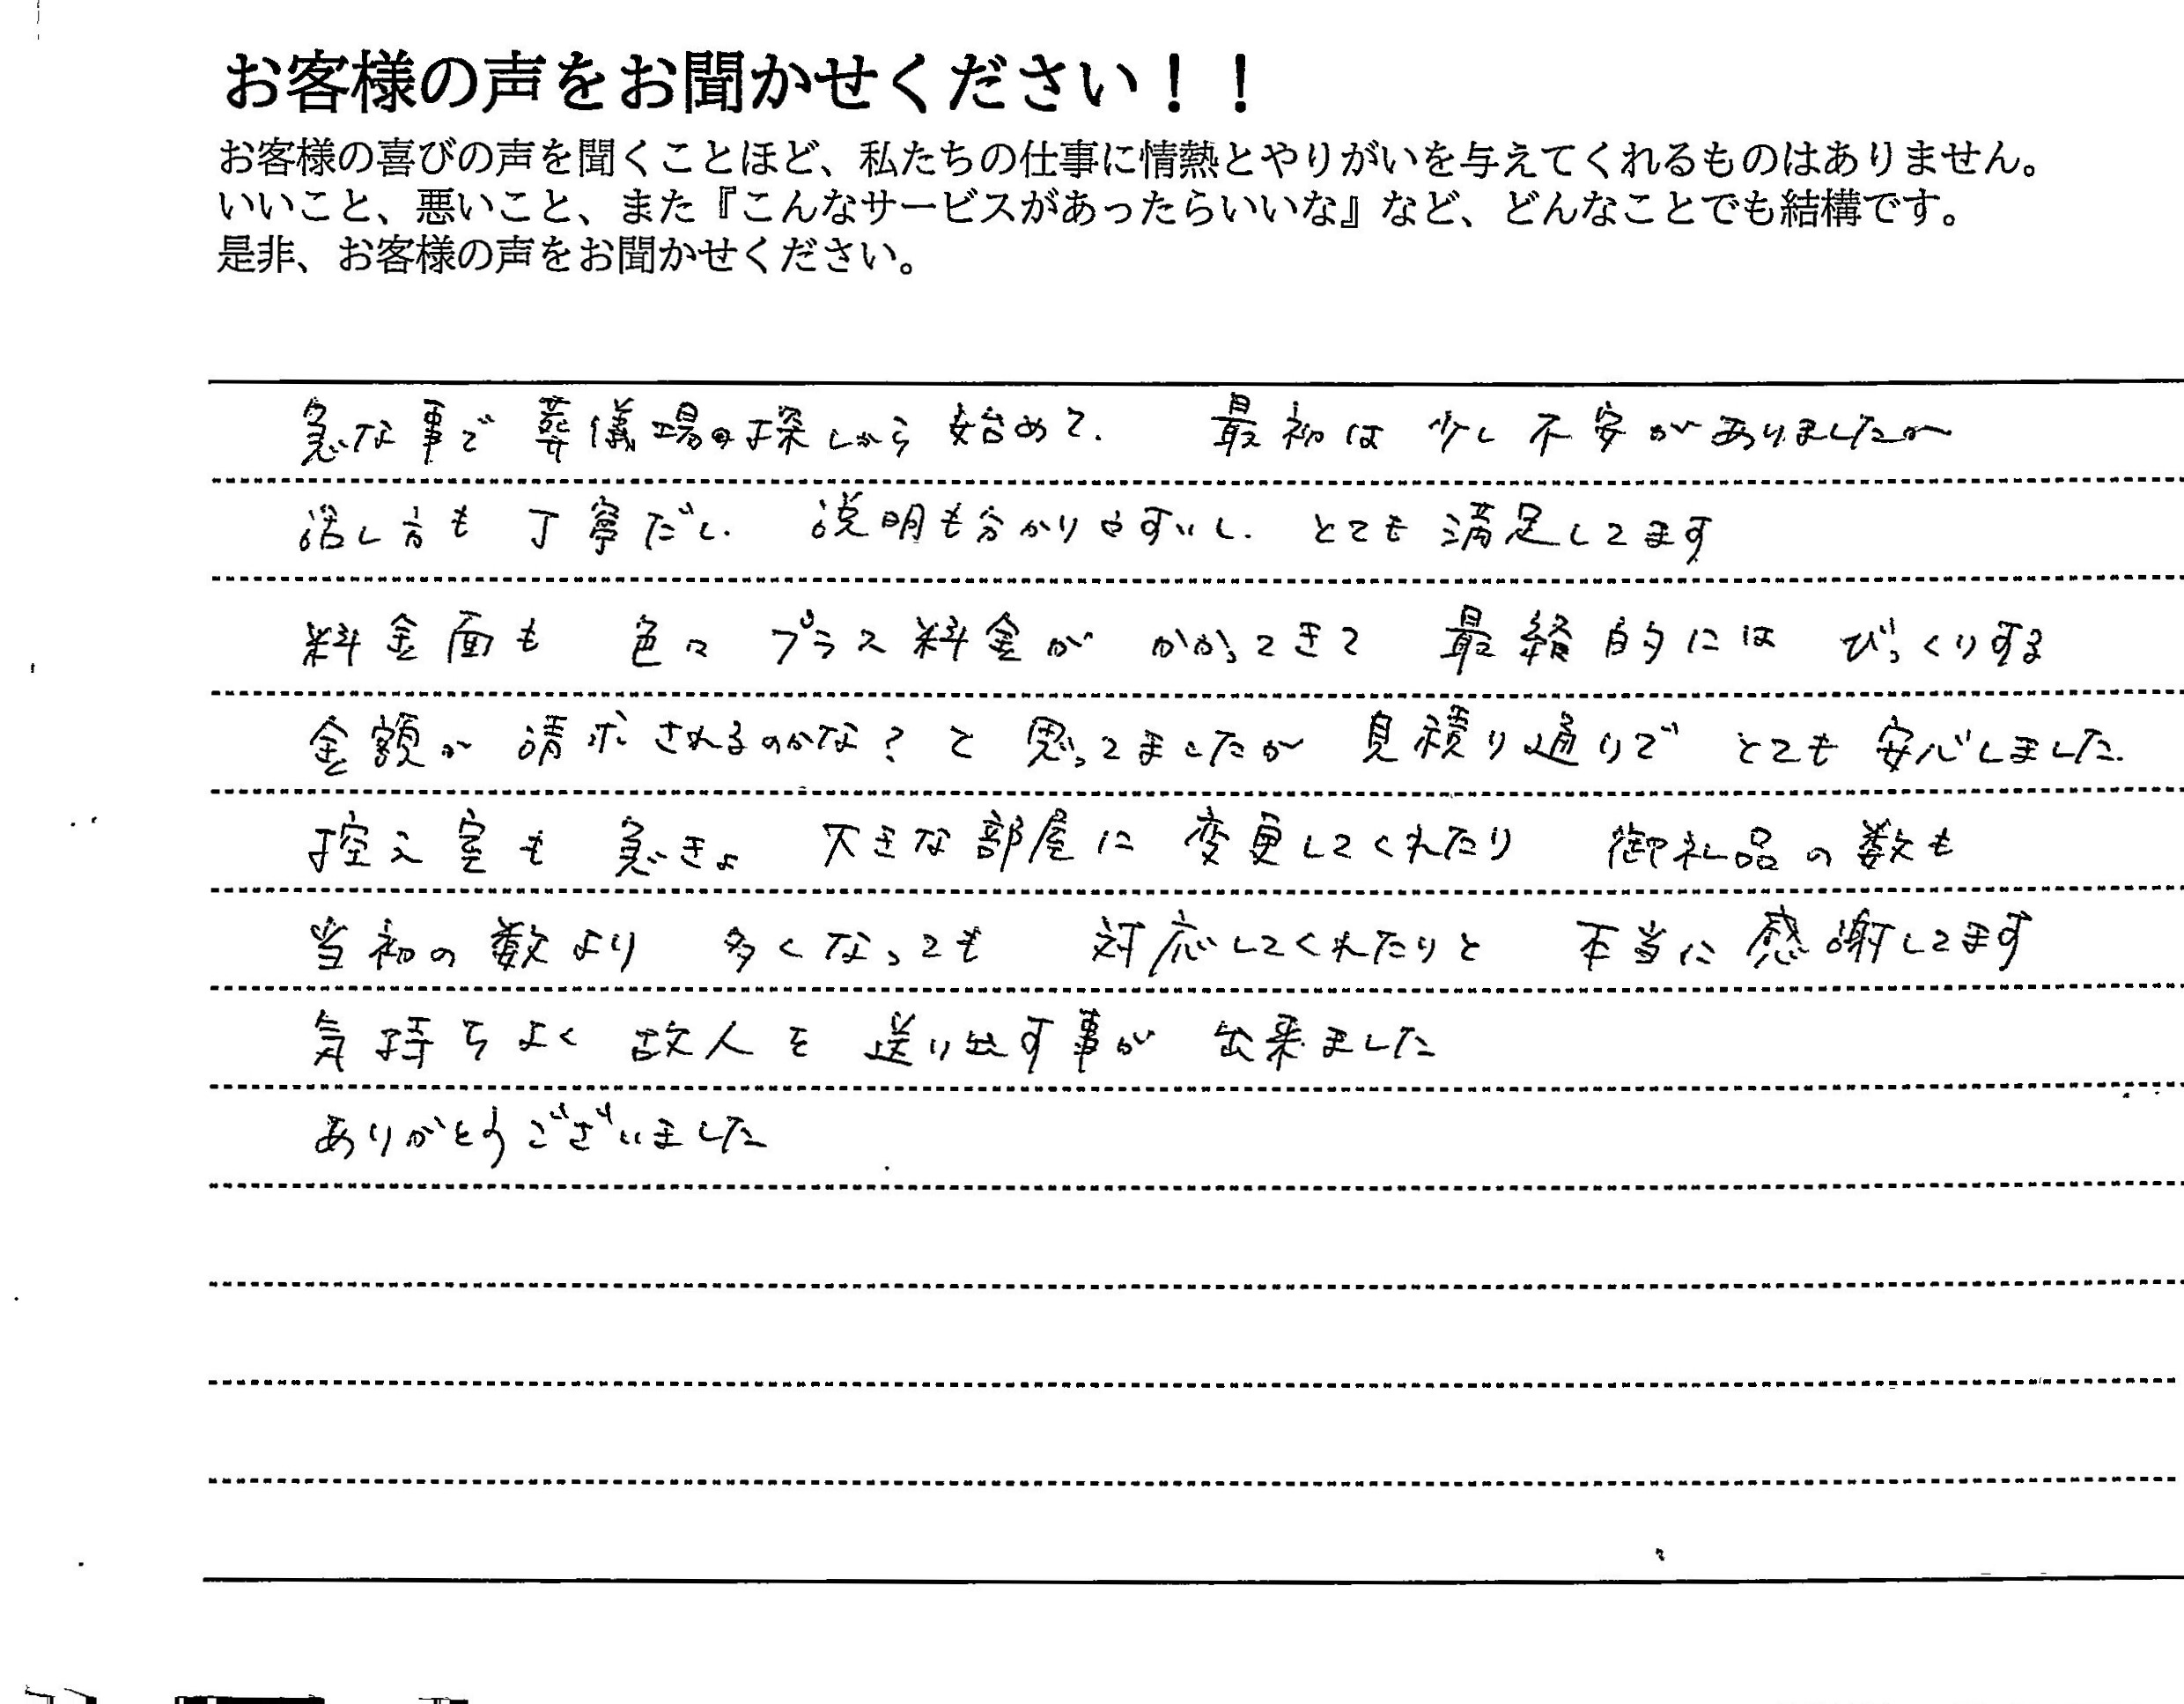 お客様の声をお聞かせください！！
お客様の喜びの声を聞くことほど、私たちの仕事に情熱とやりがいを与えてくれるものはありません。
いいこと、悪いこと、また『こんなサービスがあったらいいな』など、どんなことでも結構です。
是非、お客様の声をお聞かせください。
急な事で 葬儀場の探しから 始めて、 最初は 少し 不安がありましたが
話し方も 丁寧だし、 説明も分かりやすいし、 とても 満足してます
料金面も 色々 プラス料金が かかってきて 最終的には びっくりする
金額が 請求されるのかな？と 思ってましたが 見積り通りで とても 安心しました。
控え室も 急きょ 大きな部屋に 変更してくれたり 御礼品の数も
当初の数より 多くなっても 対応してくれたりと 本当に 感謝してます
気持ちよく 故人を 送り出す事が 出来ました
ありがとうございました